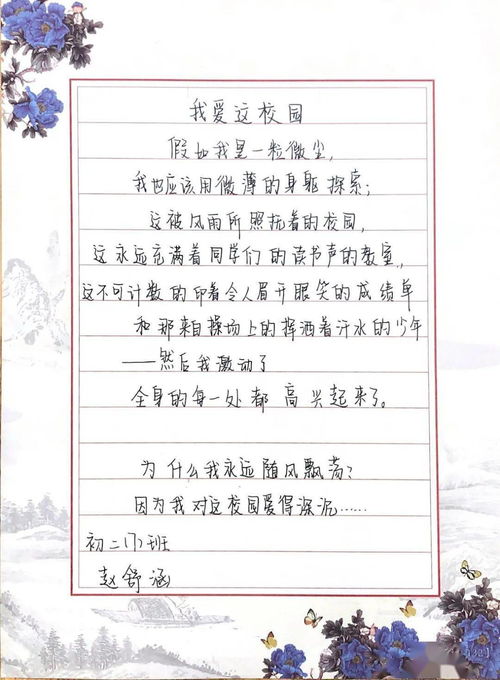 我爱这校园
假如我是一粒微尘，
我也应该用微薄的身躯探索；
这被风雨所照抚着的校园，
这永远充满着同学们的读书声的教室，
这不可计数的印着令人眉开眼笑的成绩单
和那来自操场上的挥洒着汗水的少年
——然后我激动了
全身的每一处都高兴起来了。
为什么我永远随风飘荡？
因为我对这校园爱得深沉……
初二（7）班
赵舒涵